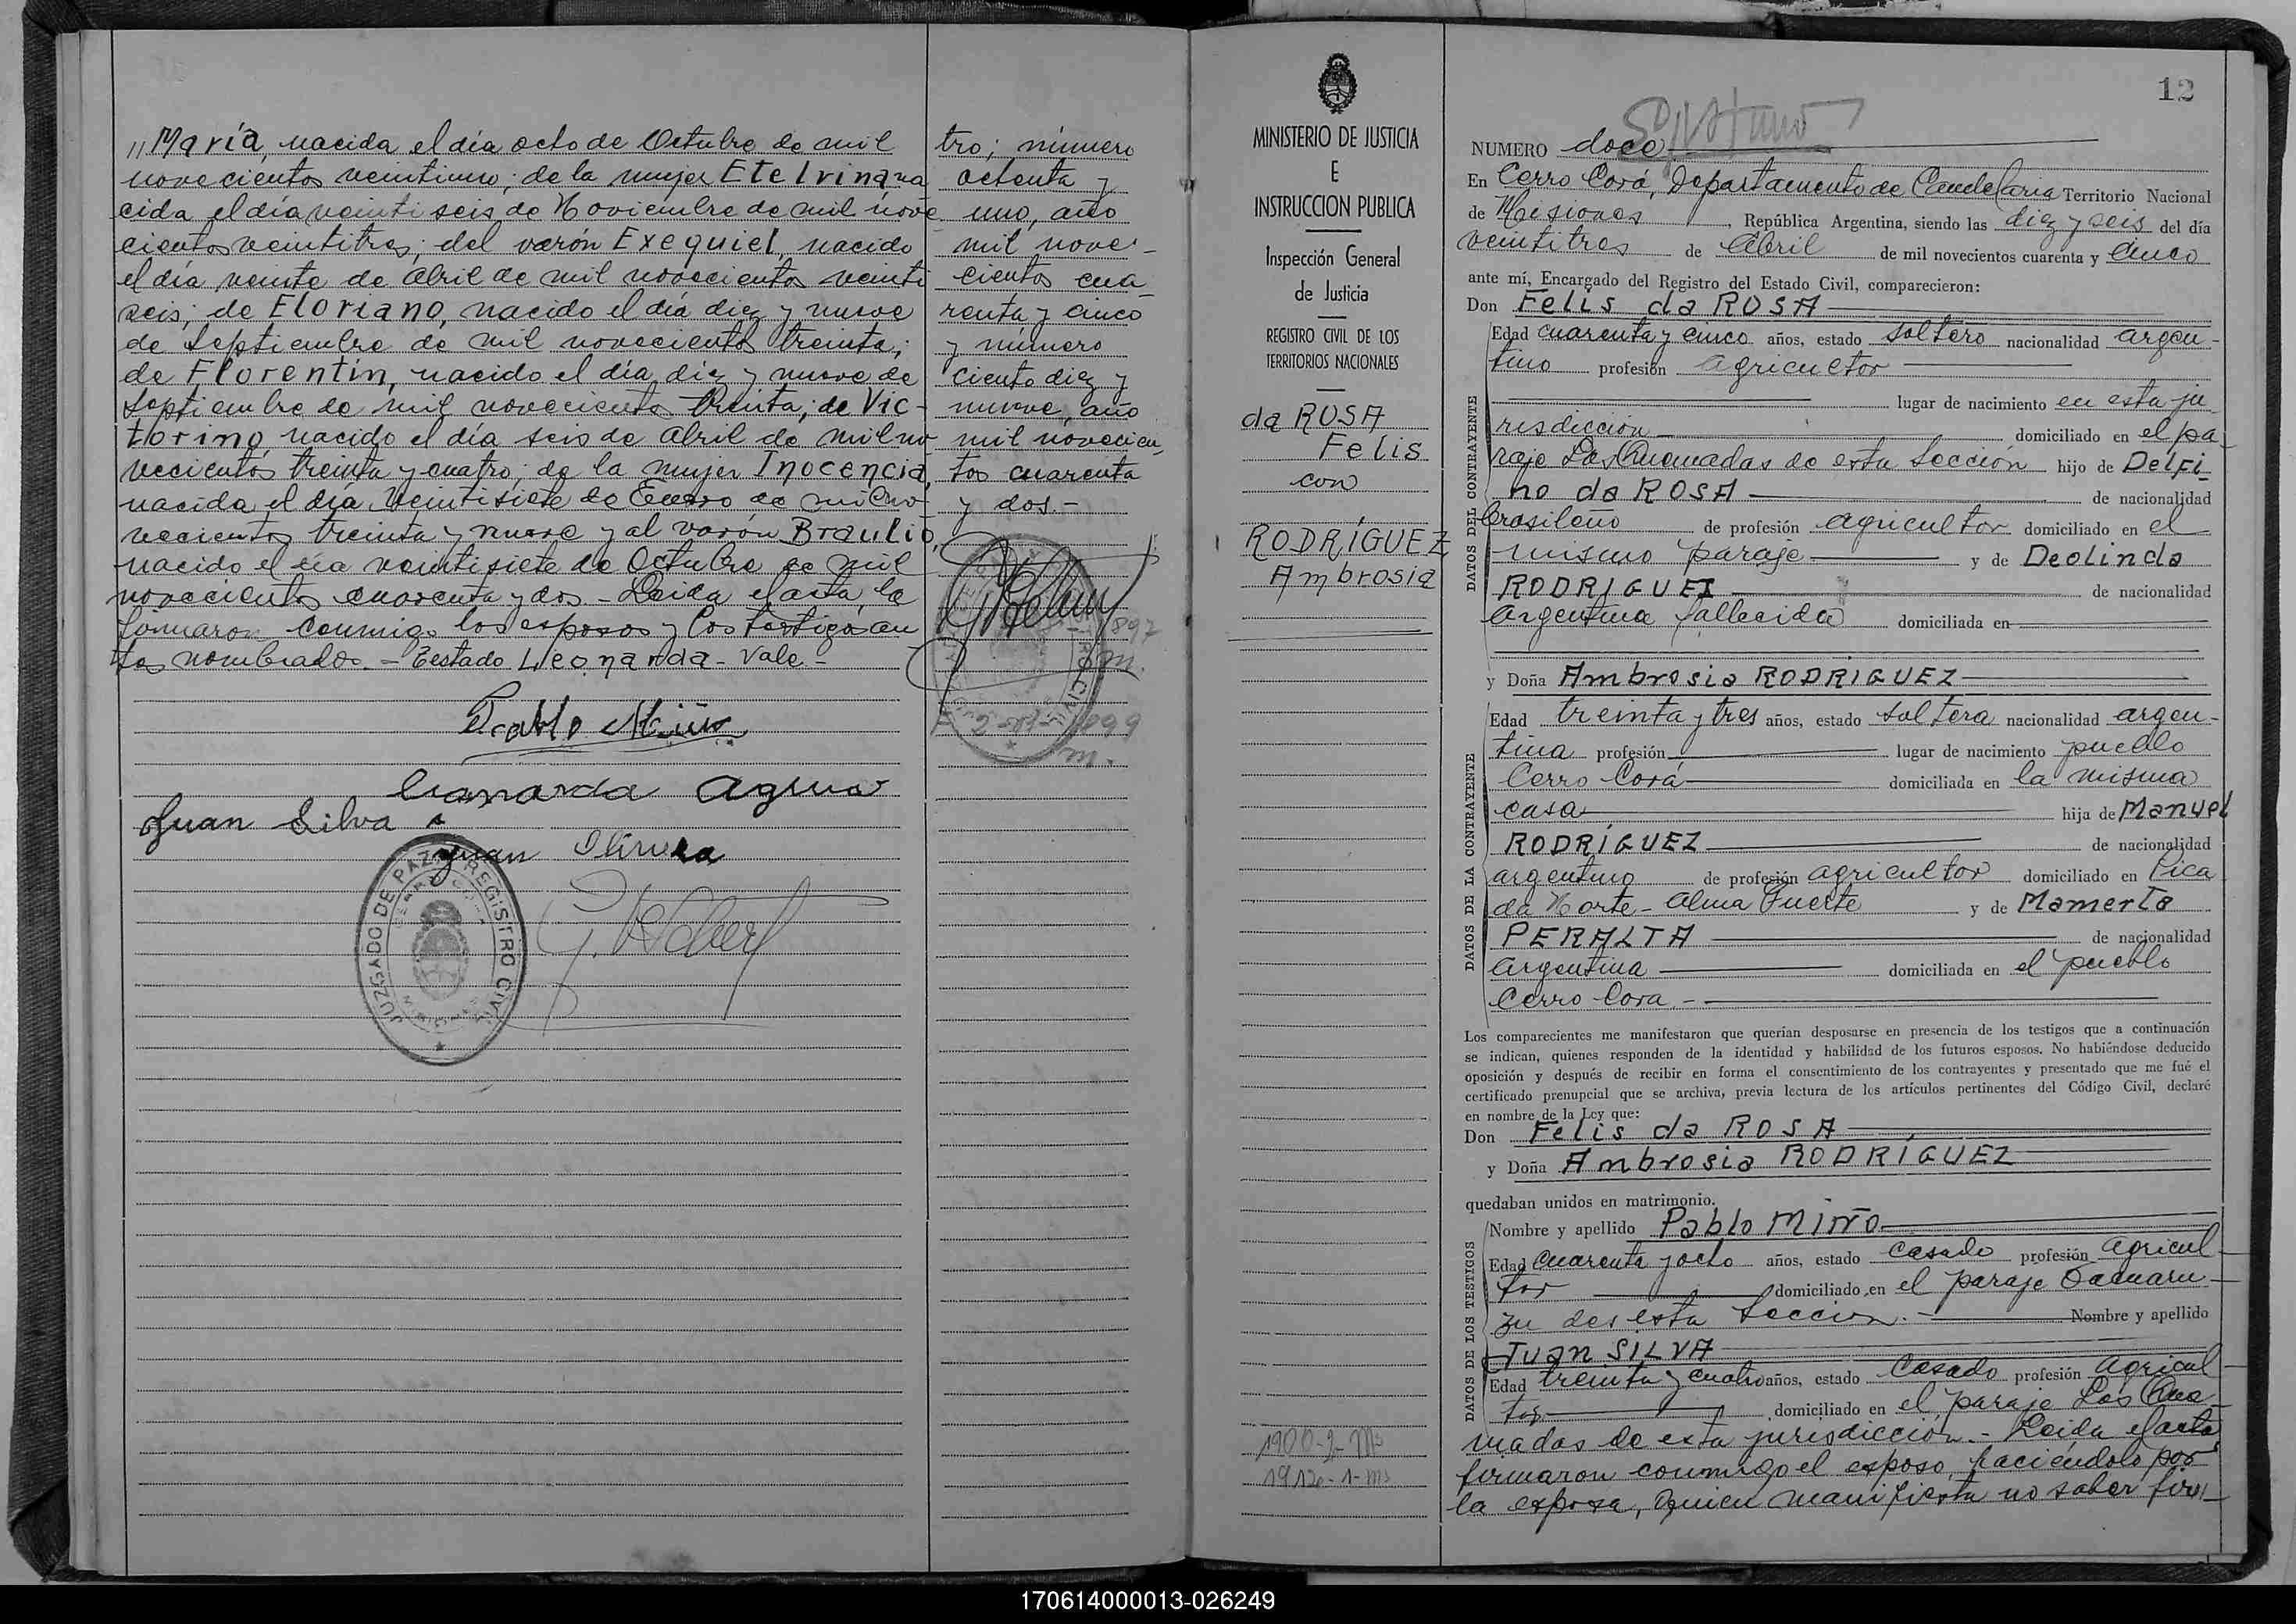 „María, nacida el día octo de Octubre de mil
novecientos veintiuno; de la mujer Etelvina na
cida el día veinti seis de Noviembre de mil nove
cientos veintitres; del varón Exequiel, nacido
el día veinte de abril de mil novecientos veinti
seis; de Floriano, nacido el día diez y nueve
de Septiembre de mil novecientos treinta;
de Florentin, nacido el día diez y nueve de
Septiembre de mil novecientos treinta; de Vic-
torino, nacido el día seis de abril de mil no
vecientos treinta y cuatro; de la mujer Inocencia,
nacida el día veintisiete de Enero de mil no
vecientos treinta y nueve y al varón Braulio,
nacido el día veintisiete de Octubre de mil
novecientos cuarenta y dos. - Leida el acta, la
firmaron conmigo los esposos y los testigos an
tes nombrados. - Testado Leonarda - Vale -
Pablo Miño
Leonarda Aguero
Juan Silva
Juan Olivera
JUZGADO DE PAZ Y REGISTRO CIVIL
CERRO CORÁ
MISIONES
tro; número
ochenta y
uno, año
mil nove-
cientos cua
renta y cinco
y número
ciento diez y
nueve, año
mil novecien
tos cuarenta
y dos. -
MINISTERIO DE JUSTICIA
E
INSTRUCCION PUBLICA
Inspección General
de Justicia
REGISTRO CIVIL DE LOS
TERRITORIOS NACIONALES
da ROSA
Felis
con
RODRÍGUEZ
Ambrosia
1900-2-Ms
1912-1-Ms
12
NUMERO doce
En Cerro Corá, Departamento de Candelaria Territorio Nacional
de Misiones, República Argentina, siendo las diez y seis del día
veintitres de Abril de mil novecientos cuarenta y cinco
ante mí, Encargado del Registro del Estado Civil, comparecieron:
Don Felis da ROSA
DATOS DEL CONTRAYENTE
Edad cuarenta y cinco años, estado soltero nacionalidad argen-
tino profesión agricultor
lugar de nacimiento en esta ju
risdicción domiciliado en el pa-
raje Las Quemadas de esta Sección hijo de Delfi-
no da ROSA de nacionalidad
brasileño de profesión agricultor domiciliado en el
mismo paraje y de Deolinda
RODRIGUEZ de nacionalidad
argentina fallecida domiciliada en
y Doña Ambrosia RODRIGUEZ
DATOS DE LA CONTRAYENTE
Edad treinta y tres años, estado soltera nacionalidad argen-
tina profesión lugar de nacimiento pueblo
Cerro Corá domiciliada en la misma
casa hija de Manuel
RODRÍGUEZ de nacionalidad
argentino de profesión agricultor domiciliado en Pica
da Norte - Alma Fuerte y de Mamerta
PERALTA de nacionalidad
argentina domiciliada en el pueblo
Cerro Cora. -
Los comparecientes me manifestaron que querían desposarse en presencia de los testigos que a continuación
se indican, quienes responden de la identidad y habilidad de los futuros esposos. No habiéndose deducido
oposición y después de recibir en forma el consentimiento de los contrayentes y presentado que me fué el
certificado prenupcial que se archiva, previa lectura de los artículos pertinentes del Código Civil, declaré
en nombre de la Ley que:
Don Felis da ROSA
y Doña Ambrosia RODRÍGUEZ
quedaban unidos en matrimonio.
DATOS DE LOS TESTIGOS
Nombre y apellido Pablo MIÑO
Edad cuarenta y ocho años, estado casado profesión agricul
tor domiciliado en el paraje Tacuaru-
zu de esta Seccion. - Nombre y apellido
Juan SILVA
Edad treinta y cuatro años, estado casado profesión agricul
tor domiciliado en el paraje Las Que
madas de esta jurisdicción. - Leida el acta,
firmaron conmigo el esposo, haciéndolo por
la esposa, quien manifiesta no saber fir-
170614000013-026249